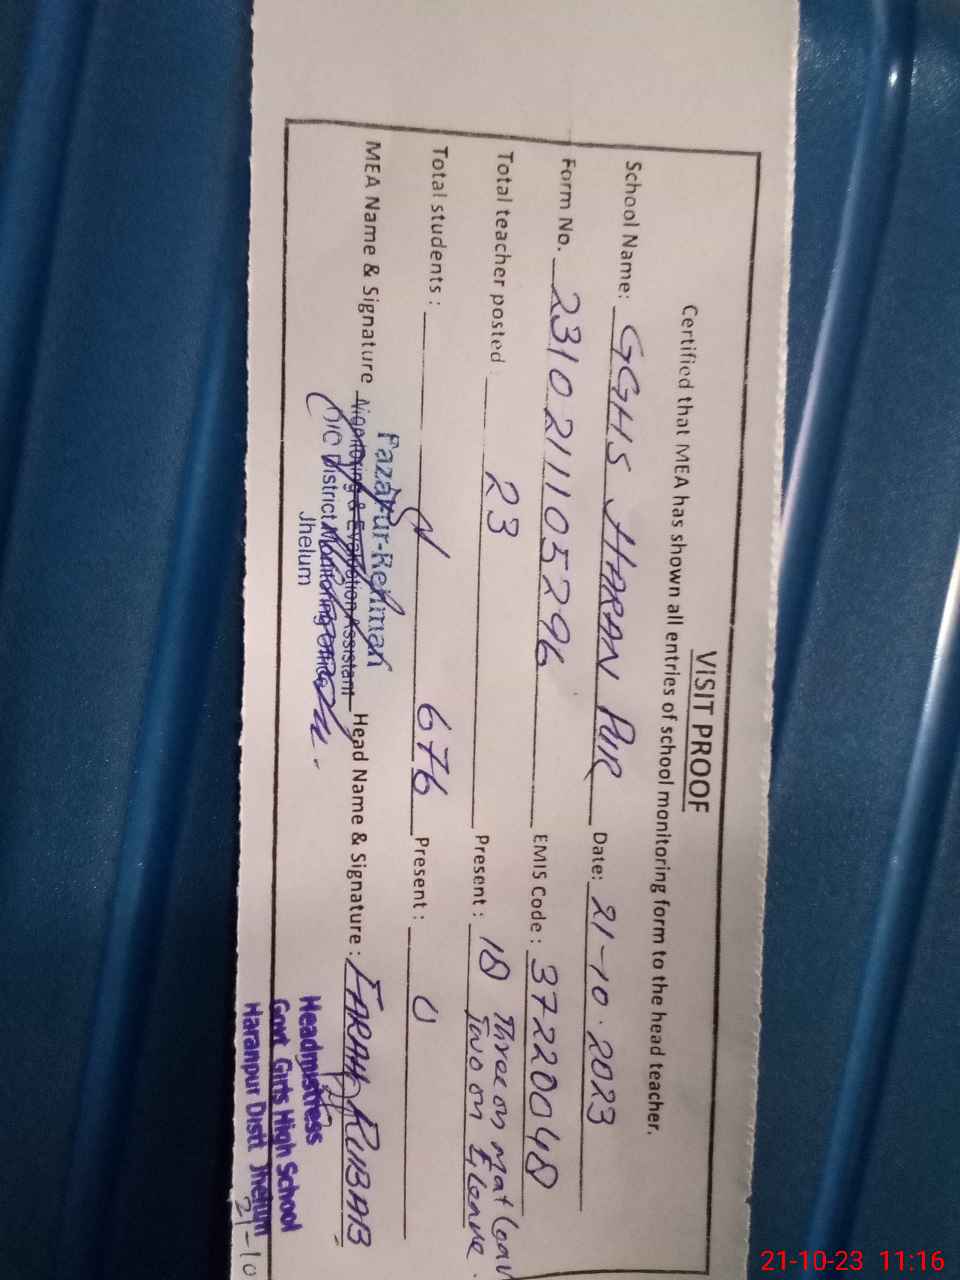 VISIT PROOF
Certified that MEA has shown all entries of school monitoring form to the head teacher.
School Name: GGHS HARAN PUR Date: 21-10-2023
Form No. 2310211105296 EMIS Code: 37220048
Total teacher posted: 23 Present: 18 Three on Mat leav
Two on E leave.
Total students: 676 Present: 0
MEA Name & Signature Head Name & Signature: FARAH RUBAB
Fazal-ur-Rehman
Monitoring & Evaluation Assistant
O/O District Monitoring Officer
Jhelum
Headmistress
Govt Girls High School
Haranpur Distt Jhelum
21-10
21-10-23 11:16